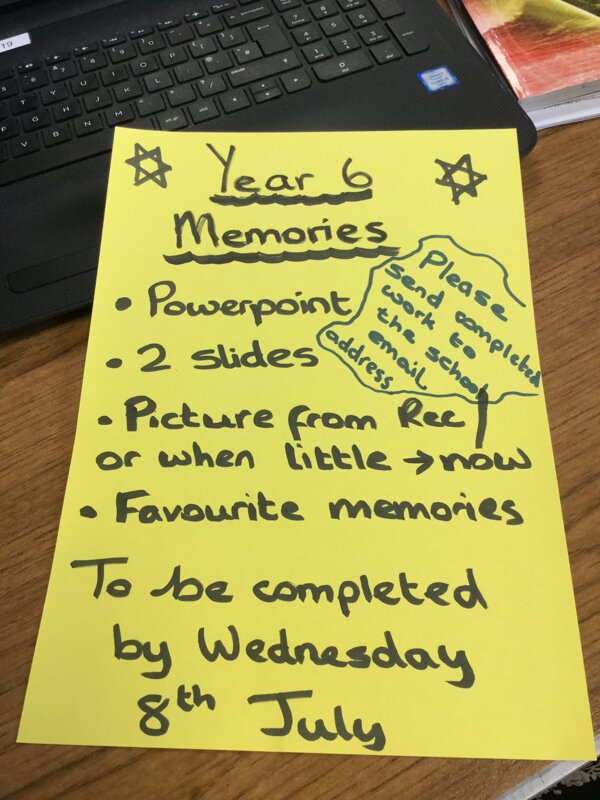 Year 6
Memories
• Powerpoint
• 2 slides
Please
send completed
work to
the school
email
address
• Picture from Rec /
or when little → now
• Favourite memories
To be completed
by Wednesday
8th July